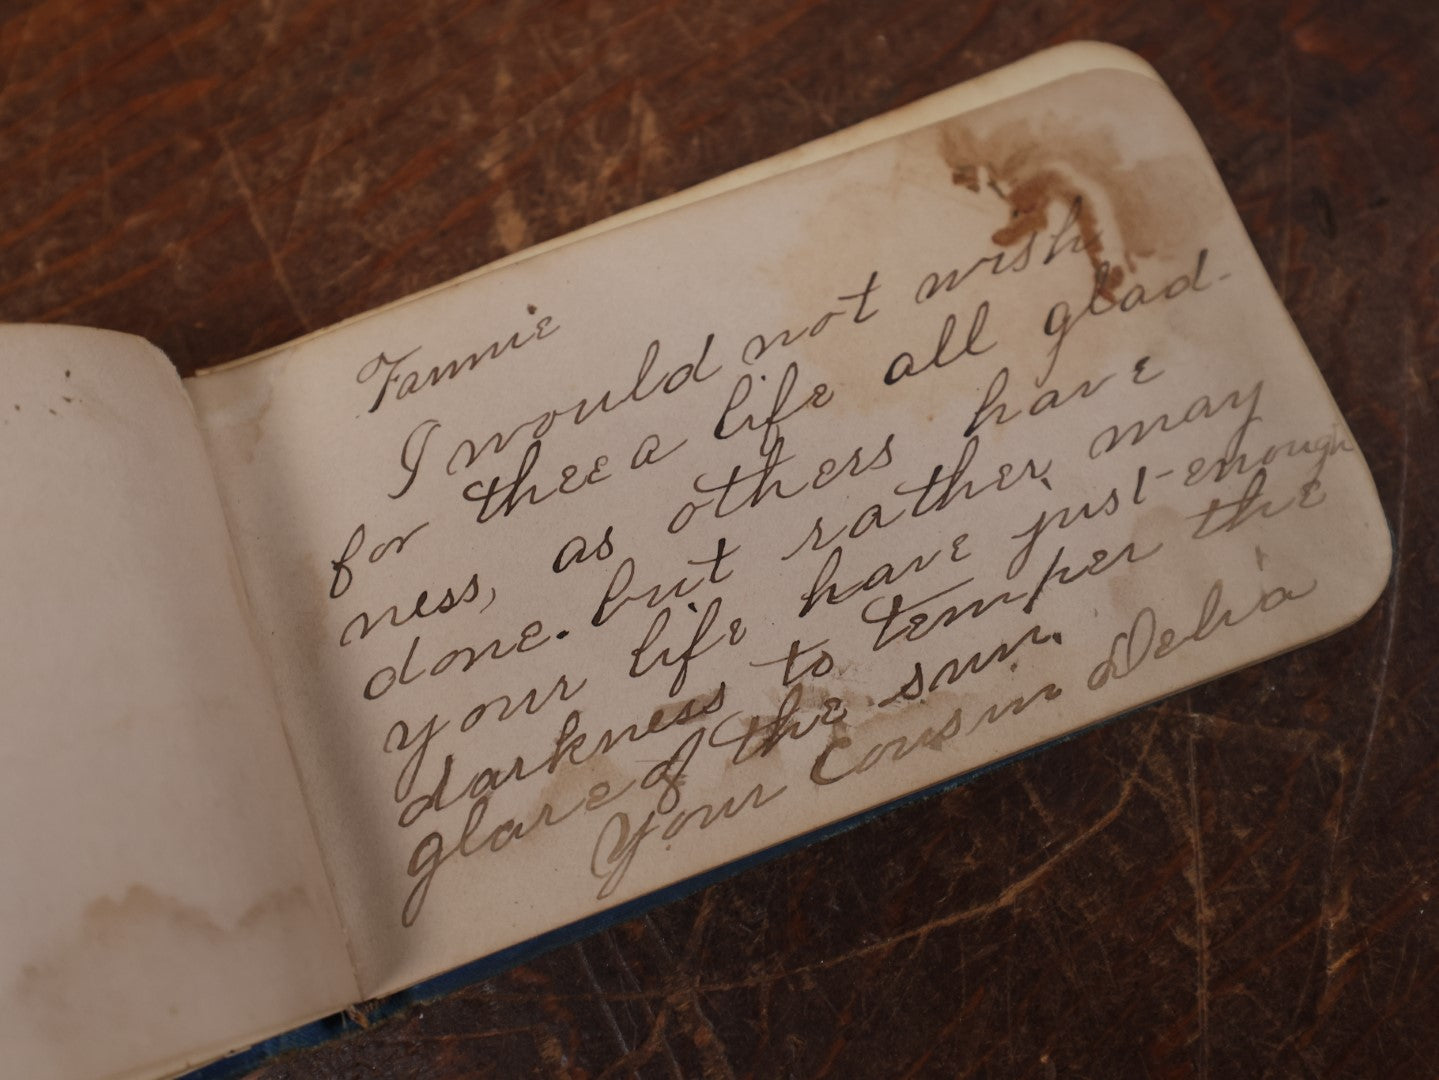 Fannie
I would not wish
for thee a life all glad-
ness, as others have
done. but rather, may
your life have just enough
darkness to temper the
glare of the sun.
Your Cousin Delia